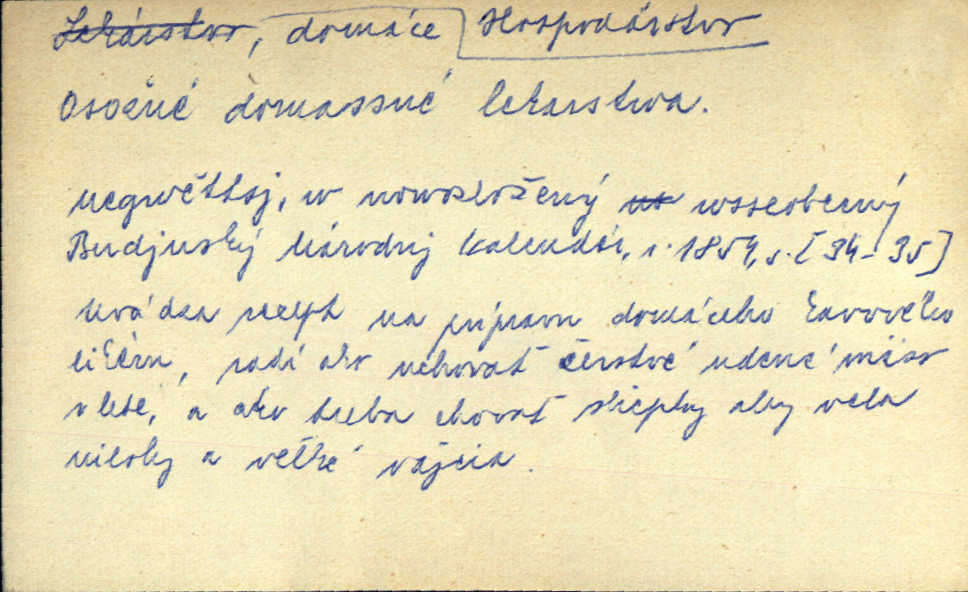 Lekárstvo, domáce Hospodárstvo
Osožné domassné lekarstwa.
Negwěttsj, w nowozložený wsseobecný
Budjnský Národnj kalendár, r. 1854, s. [34-35]
Uvádza recept na prípravu domáceho kávového
likéru, radí ako uchovať čerstvé udené mäso
v lete, a ako treba chovať sliepky aby veľa
niesly a veľké vajcia.